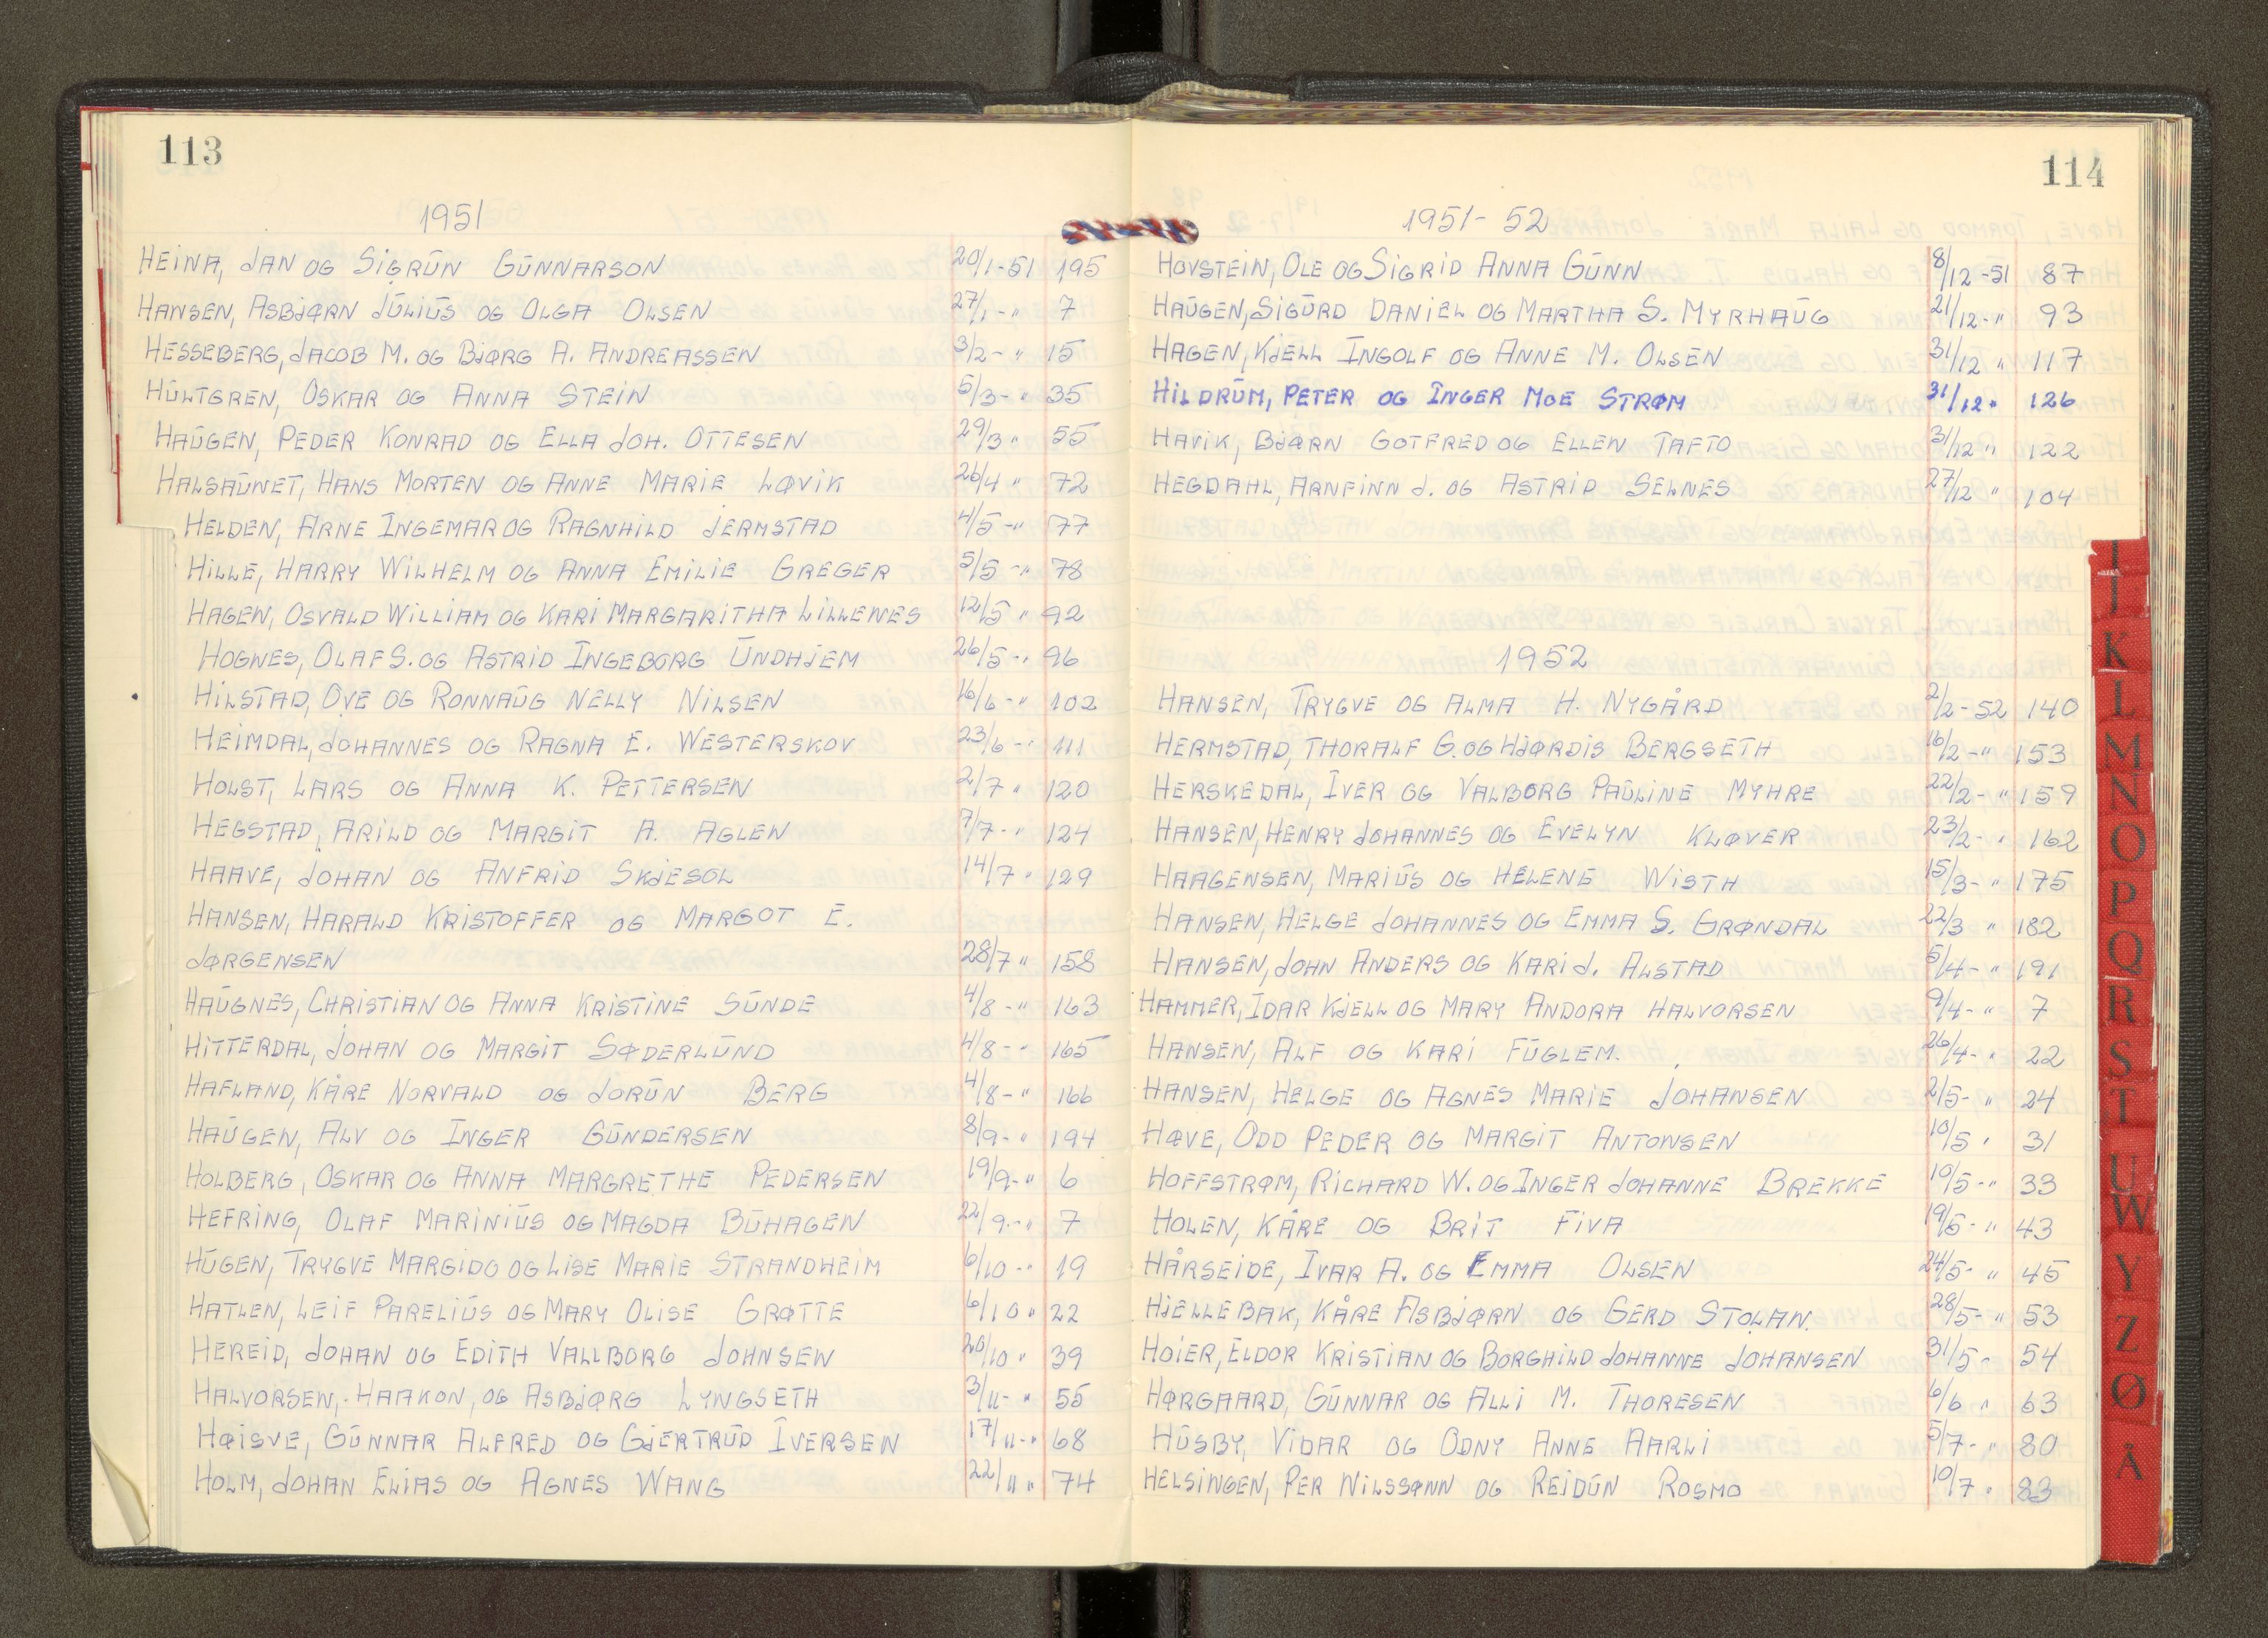 113
1951
HEINA, JAN OG SIGRŪN GŪNNARSON 20/1-51 195
HANSEN, ASBJØRN JŪLIŪS OG OLGA OLSEN 27/1-" 7
HESSEBERG, JACOB M. OG BJØRG A. ANDREASSEN 3/2-" 15
HŪLTGREN, OSKAR OG ANNA STEIN 5/3-" 35
HAŪGEN, PEDER KONRAD OG ELLA JOH. OTTESEN 29/3 " 55
HALSAŪNET, HANS MORTEN OG ANNE MARIE LØVIK 26/4 " 72
HELDEN, ARNE INGEMAR OG RAGNHILD JERMSTAD 4/5-" 77
HILLE, HARRY WILHELM OG ANNA EMILIE GREGER 5/5-" 78
HAGEN, OSVALD WILLIAM OG KARI MARGARITHA LILLENES 12/5 " 92
HOGNES, OLAF S. OG ASTRID INGEBORG ŪNDHJEM 26/5-" 96
HILSTAD, OVE OG RONNAŪG NELLY NILSEN 16/6-" 102
HEIMDAL, JOHANNES OG RAGNA E. WESTERSKOV 23/6-" 111
HOLST, LARS OG ANNA K. PETTERSEN 2/7 " 120
HEGSTAD, ARILD OG MARGIT A. AGLEN 7/7-" 124
HAAVE, JOHAN OG ANFRID SKJESOL 14/7 " 129
HANSEN, HARALD KRISTOFFER OG MARGOT E.
JØRGENSEN 28/7 " 158
HAŪGNES, CHRISTIAN OG ANNA KRISTINE SŪNDE 4/8-" 163
HITTERDAL, JOHAN OG MARGIT SØDERLŪND 4/8-" 165
HAFLAND, KÅRE NORVALD OG JORŪN BERG 4/8-" 166
HAŪGEN, ALV OG INGER GŪNDERSEN 8/9-" 194
HOLBERG, OSKAR OG ANNA MARGRETHE PEDERSEN 19/9-" 6
HEFRING, OLAF MARINIŪS OG MAGDA BŪHAGEN 22/9-" 7
HŪGEN, TRYGVE MARGIDO OG LISE MARIE STRANDHEIM 6/10-" 19
HATLEN, LEIF PARELIŪS OG MARY OLISE GRØTTE 6/10 " 22
HEREID, JOHAN OG EDITH VALLBORG JOHNSEN 20/10 " 39
HALVORSEN, HAAKON, OG ASBJØRG LYNGSETH 3/11-" 55
HØISVE, GŪNNAR ALFRED OG GJERTRŪD IVERSEN 17/11-" 68
HOLM, JOHAN ELIAS OG AGNES WANG 22/11 " 74
114
1951-52
HOVSTEIN, OLE OG SIGRID ANNA GŪNN 8/12-51 87
HAŪGEN, SIGŪRD DANIEL OG MARTHA S. MYRHAŪG 21/12-" 93
HAGEN, KJELL INGOLF OG ANNE M. OLSEN 31/12 " 117
HILDRŪM, PETER OG INGER MOE STRØM 31/12 " 126
HAVIK, BJØRN GOTFRED OG ELLEN TAFTO 31/12 " 122
HEGDAHL, ARNFINN J. OG ASTRID SELNES 27/12 " 104
1952
HANSEN, TRYGVE OG ALMA H. NYGÅRD 2/2-52 140
HERMSTAD, THORALF G. OG HJØRDIS BERGSETH 16/2-" 153
HERSKEDAL, IVER OG VALBORG PAŪLINE MYHRE 22/2-" 159
HANSEN, HENRY JOHANNES OG EVELYN KLØVER 23/2-" 162
HAAGENSEN, MARIŪS OG HELENE WISTH 15/3-" 175
HANSEN, HELGE JOHANNES OG EMMA S. GRØNDAL 22/3 " 182
HANSEN, JOHN ANDERS OG KARI J. ALSTAD 5/4-" 191
HAMMER, IDAR KJELL OG MARY ANDORA HALVORSEN 9/4-" 7
HANSEN, ALF OG KARI FŪGLEM. 26/4-" 22
HANSEN, HELGE OG AGNES MARIE JOHANSEN 2/5-" 24
HØVE, ODD PEDER OG MARGIT ANTONSEN 10/5 " 31
HOFFSTRØM, RICHARD W. OG INGER JOHANNE BREKKE 10/5-" 33
HOLEN, KÅRE OG BRIT FIVA 19/5-" 43
HÅRSEIDE, IVAR A. OG EMMA OLSEN 24/5-" 45
HJELLEBAK, KÅRE ASBJØRN OG GERD STOLAN. 28/5-" 53
HOIER, ELDOR KRISTIAN OG BORGHILD JOHANNE JOHANSEN 31/5-" 54
HØRGAARD, GŪNNAR OG ALLI M. THORESEN 6/6 " 63
HŪSBY, VIDAR OG ODNY ANNE AARLI 5/7-" 80
HELSINGEN, PER NILSSØNN OG REIDŪN ROSMO 10/7 " 83
I
J
K
L
M
N
O
P
Q
R
S
T
U
W
Y
Z
Ø
Å